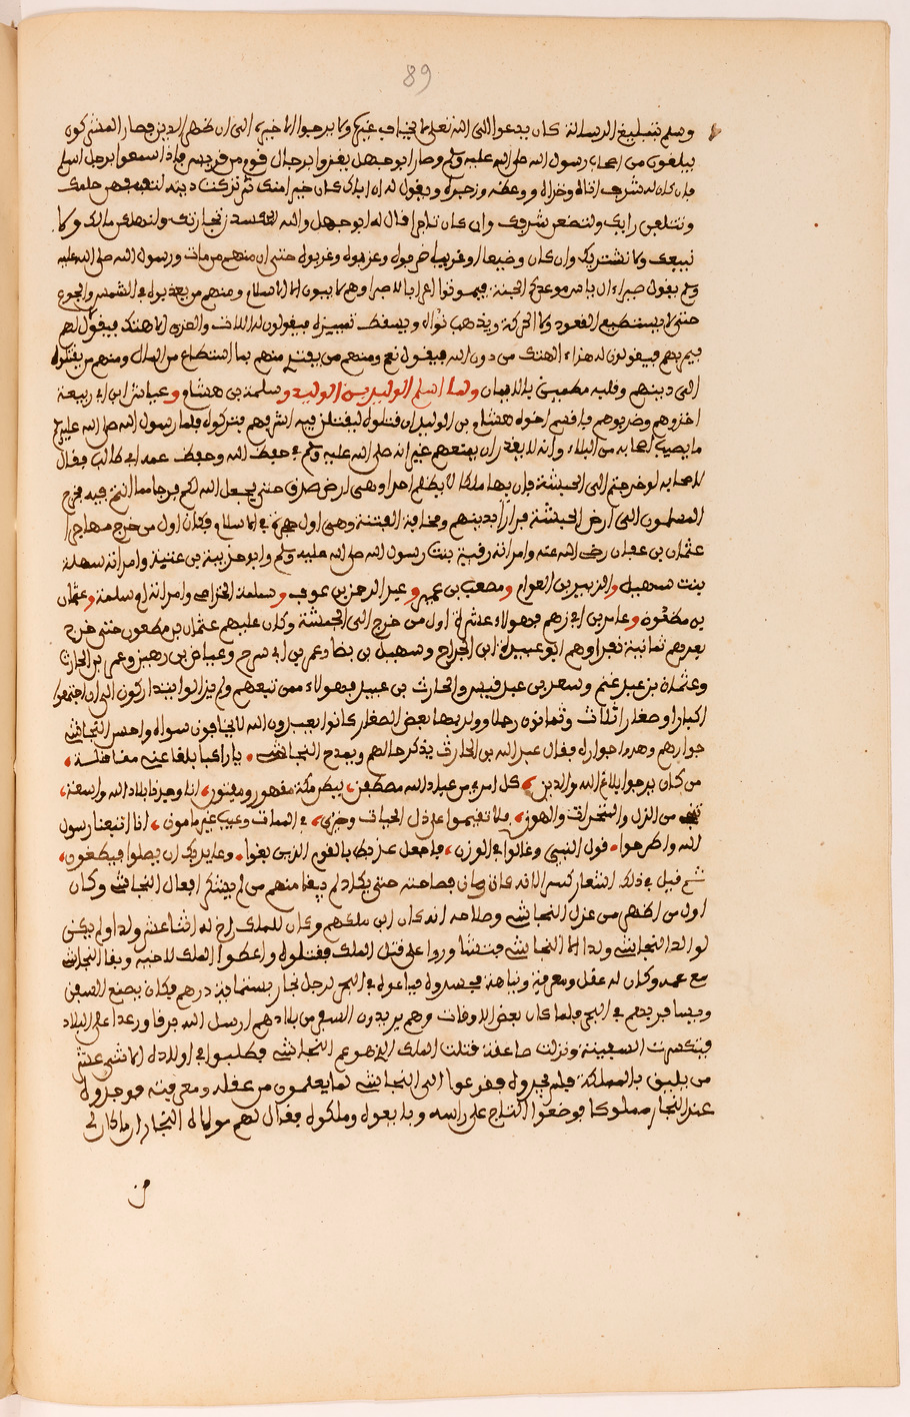 89
وسلم بتبليغ الرسالة كان يدعوا الى الله تعلى لا يخاف غيره ولا يرجوا الا خيره الى ان ظهر الدين فصار المشركون
يبلغون من اصحاب رسول الله صلى الله عليه وسلم وصار ابو جهل يغزوا برجال قوم من قريش فاذا سمعوا برجل اسلم
فان كان له شرف اتاه وخزاه ووعظه وزجره ويقول له ان اباك كان خير امنك ثم تركت دينه لنسفهن حلمك
ونتلفن رايك ولنضعن شرفك وان كان تاجرا قال له ابو جهل والله لنكسدن تجارتك ولنهلكن مالك ولا
نبيعك ولا نشتريك وان كان وضيعا او غريبا ضربوه وعذبوه وغربوه حتى ان منهم من مات ورسول الله صلى الله عليه
وسلم يقول صبرا ءال ياسر موعدكم الجنة فيموتوا وهم لا يبون الا الاسلام ومنهم من يعذبوه في الشمس والجوع
حتى لا يستطيع القعود ولا الحركة ويذهب ويسقط تمييزه فيقولون له اللات والعزى الاهتك فيقول لهم
فيقولون له هذا الهك من دون الله فيقول نعم ومنهم من يفتدي منهم بما استطاع من المال ومنهم من يفتنوه
الى دينهم وقلبه مطمين بالايمان ولما اسلم الوليد بن الوليد وسلمة بن هشام وعياش ابن ابي ربيعة
اخذوهم وضربوهم فاقسم اخوه هشام بن الوليد ان قتلوه ليقتلن فيه اشرفهم فتركوه فلما رسول الله صلى الله عليه وسلم
ما يصيب اصحابه من البلاء وانه لا يقدر ان يمنعهم غير انه صلى الله عليه وسلم في حفظ الله وحفظ عمه ابي طالب فقال
لاصحابه لو خرجتم الى الحبشة فان بها ملكا لا يظلم احد وهي ارض صدق حتى يجعل الله لكم فرجا مما انتم فيه فخرج
المسلمون الى ارض الحبشة فرارا بدينهم ومخافة الفتنة وهي اول هجرة في الاسلام فكان اول من خرج مهاجرا
عثمان بن عفان رضي الله عنه وامراته رقية بنت رسول الله صلى الله عليه وسلم وابو حذيفة بن عتبة وامراته سهلة
بنت سهيل والزبير بن العوام ومصعب بن عمير وعبد الرحمن بن عوف وسلمة المخزامي وامراته ام سلمة وعثمان
بن مظعون وعامر بن ابي زهم فهولاء عشرة اول من خرج الى الحبشة وكان عليهم عثمان بن مظعون حتى خرج
بعدهم ثمانية نفرا وهم ابو عبيدة ابن الجراح وسهيل بن بيضا وعمر بن ابي سرح وعياض بن زهير وعمر بن الحارث
وعثمان بن عبد غنم وسعد بن عبد قيس والحارث بن عبيد فهولاء ممن تبعهم ولم يزالوا يتداركون الى ان اجتمعوا
اكبارا وصغارا ثلاث وثمانون رجلا وولد بها بعض الصغار كانوا يعبدون الله لا يخافون سواه واحسن النجاشي
جوارهم وهدوا جواره فقال عبد الله بن الحارث يذكر حالهم ويمدح النجاشي • يا راكبا بلغا عني مغلغلة
من كان يرجوا بلاغ الله والدين كل امرء من عباد الله مضطهد ببطن مكة مقهور ومفتون انا وجدنا بلاد الله واسعة
تنجى من الذل والمخزات والهون فلا تقيموا على ذل الحيات وخزي في الممات وعيب غير مامون انا اتبعنا رسول
الله واطرحوا قول النبيي وغالوا في الوزن فاجعل عذابك بالقوم الذين بغوا وعايذ بك ان يصلوا فيطغون
قيل في ذلك اشعار كثيرة الا انه كان فصاحته حتى يكاد لم يبقا منهم من لم يشكر افعال النجاشي وكان
اول من اظهر من عدل النجاشي وصلاحه انه كان ابن ملكهم وكان للملك اخ له اثنا عشر ولدا ولم يكن
لوالد النجاشي ولد الا النجاشي فتشاوروا على قتل الملك فقتلوه واعطوا الملك لاخيه وبقا النجاشي
مع عمه وكان له عقل ومعرفة ونباهة فحسدوه فباعوه في البحر لرجل نجار بستماية درهم فكان يصنع السفن
ويسافر بهم في البحر فلما كان بعض الاوقات وهم يريدون السفر من بلادهم ارسل الله برقا ورعدا على البلاد
فتكسرت السفينة ونزلت صاعقة قتلت الملك الذي هو عم النجاشي فطلبوا في اولاده الاثني عشر
من يليق بالمملكة فلم يجدوه ففزعوا الى النجاشي لما يعلمون من عقله ومعرفته فوجدوه
عند النجار مملوكا فوضعوا التاج على راسه وبايعوه وملكوه فقال لهم مولاه النجار اما كان لي
من